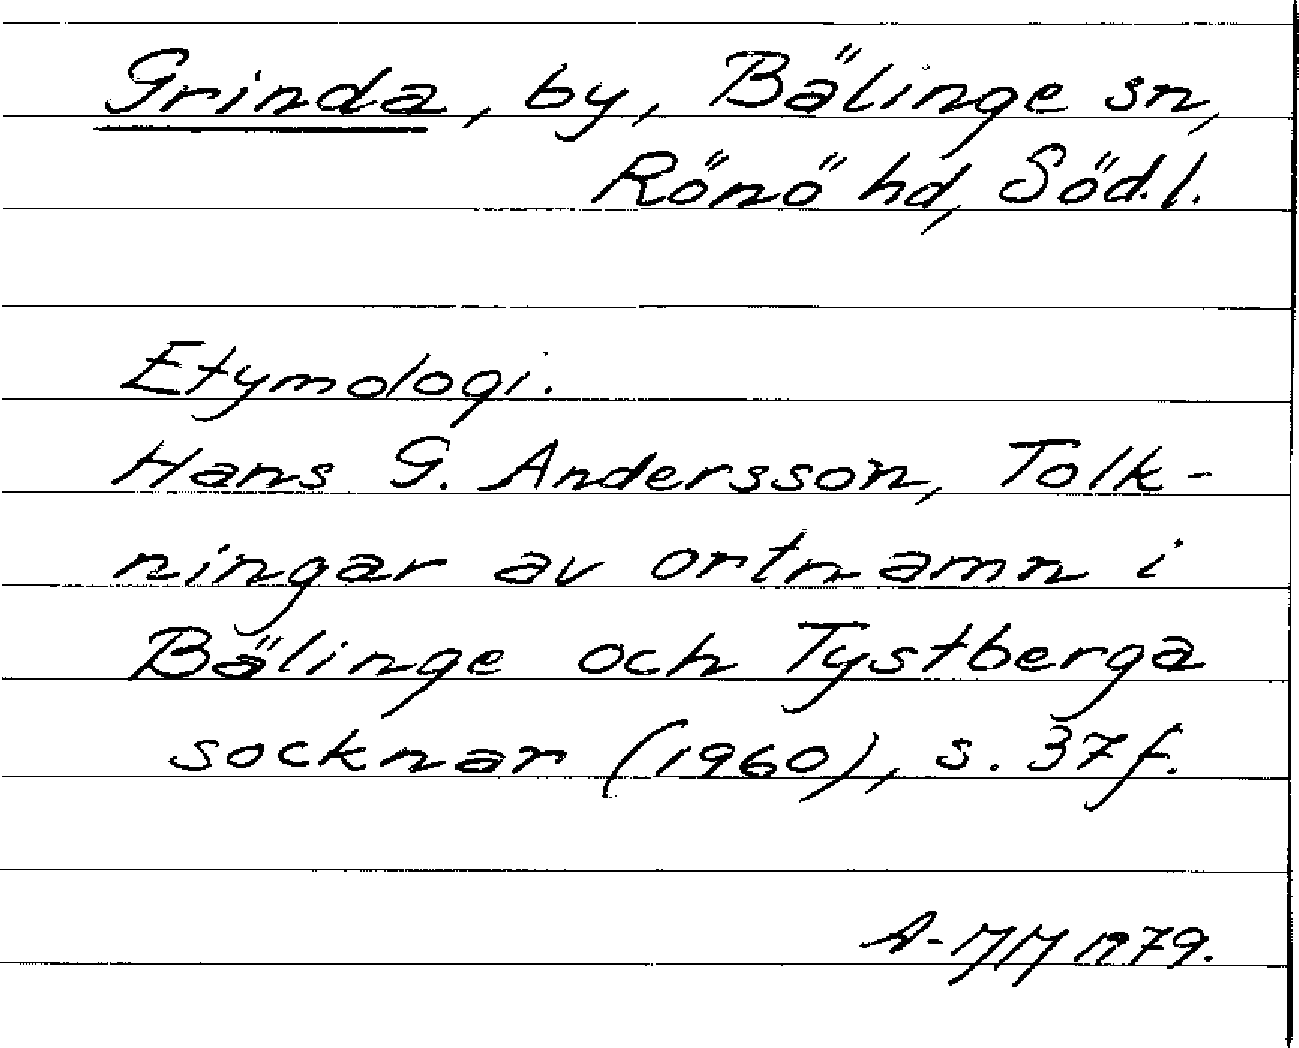 Grinda, by, Bälinge sn,
Rönö hd, Söd.l.
Etymologi.
Hans G. Andersson, Tolk-
ningar av ortnamn i
Bälinge och Tystberga
socknar (1960), s. 37f.
A-MM 1979.